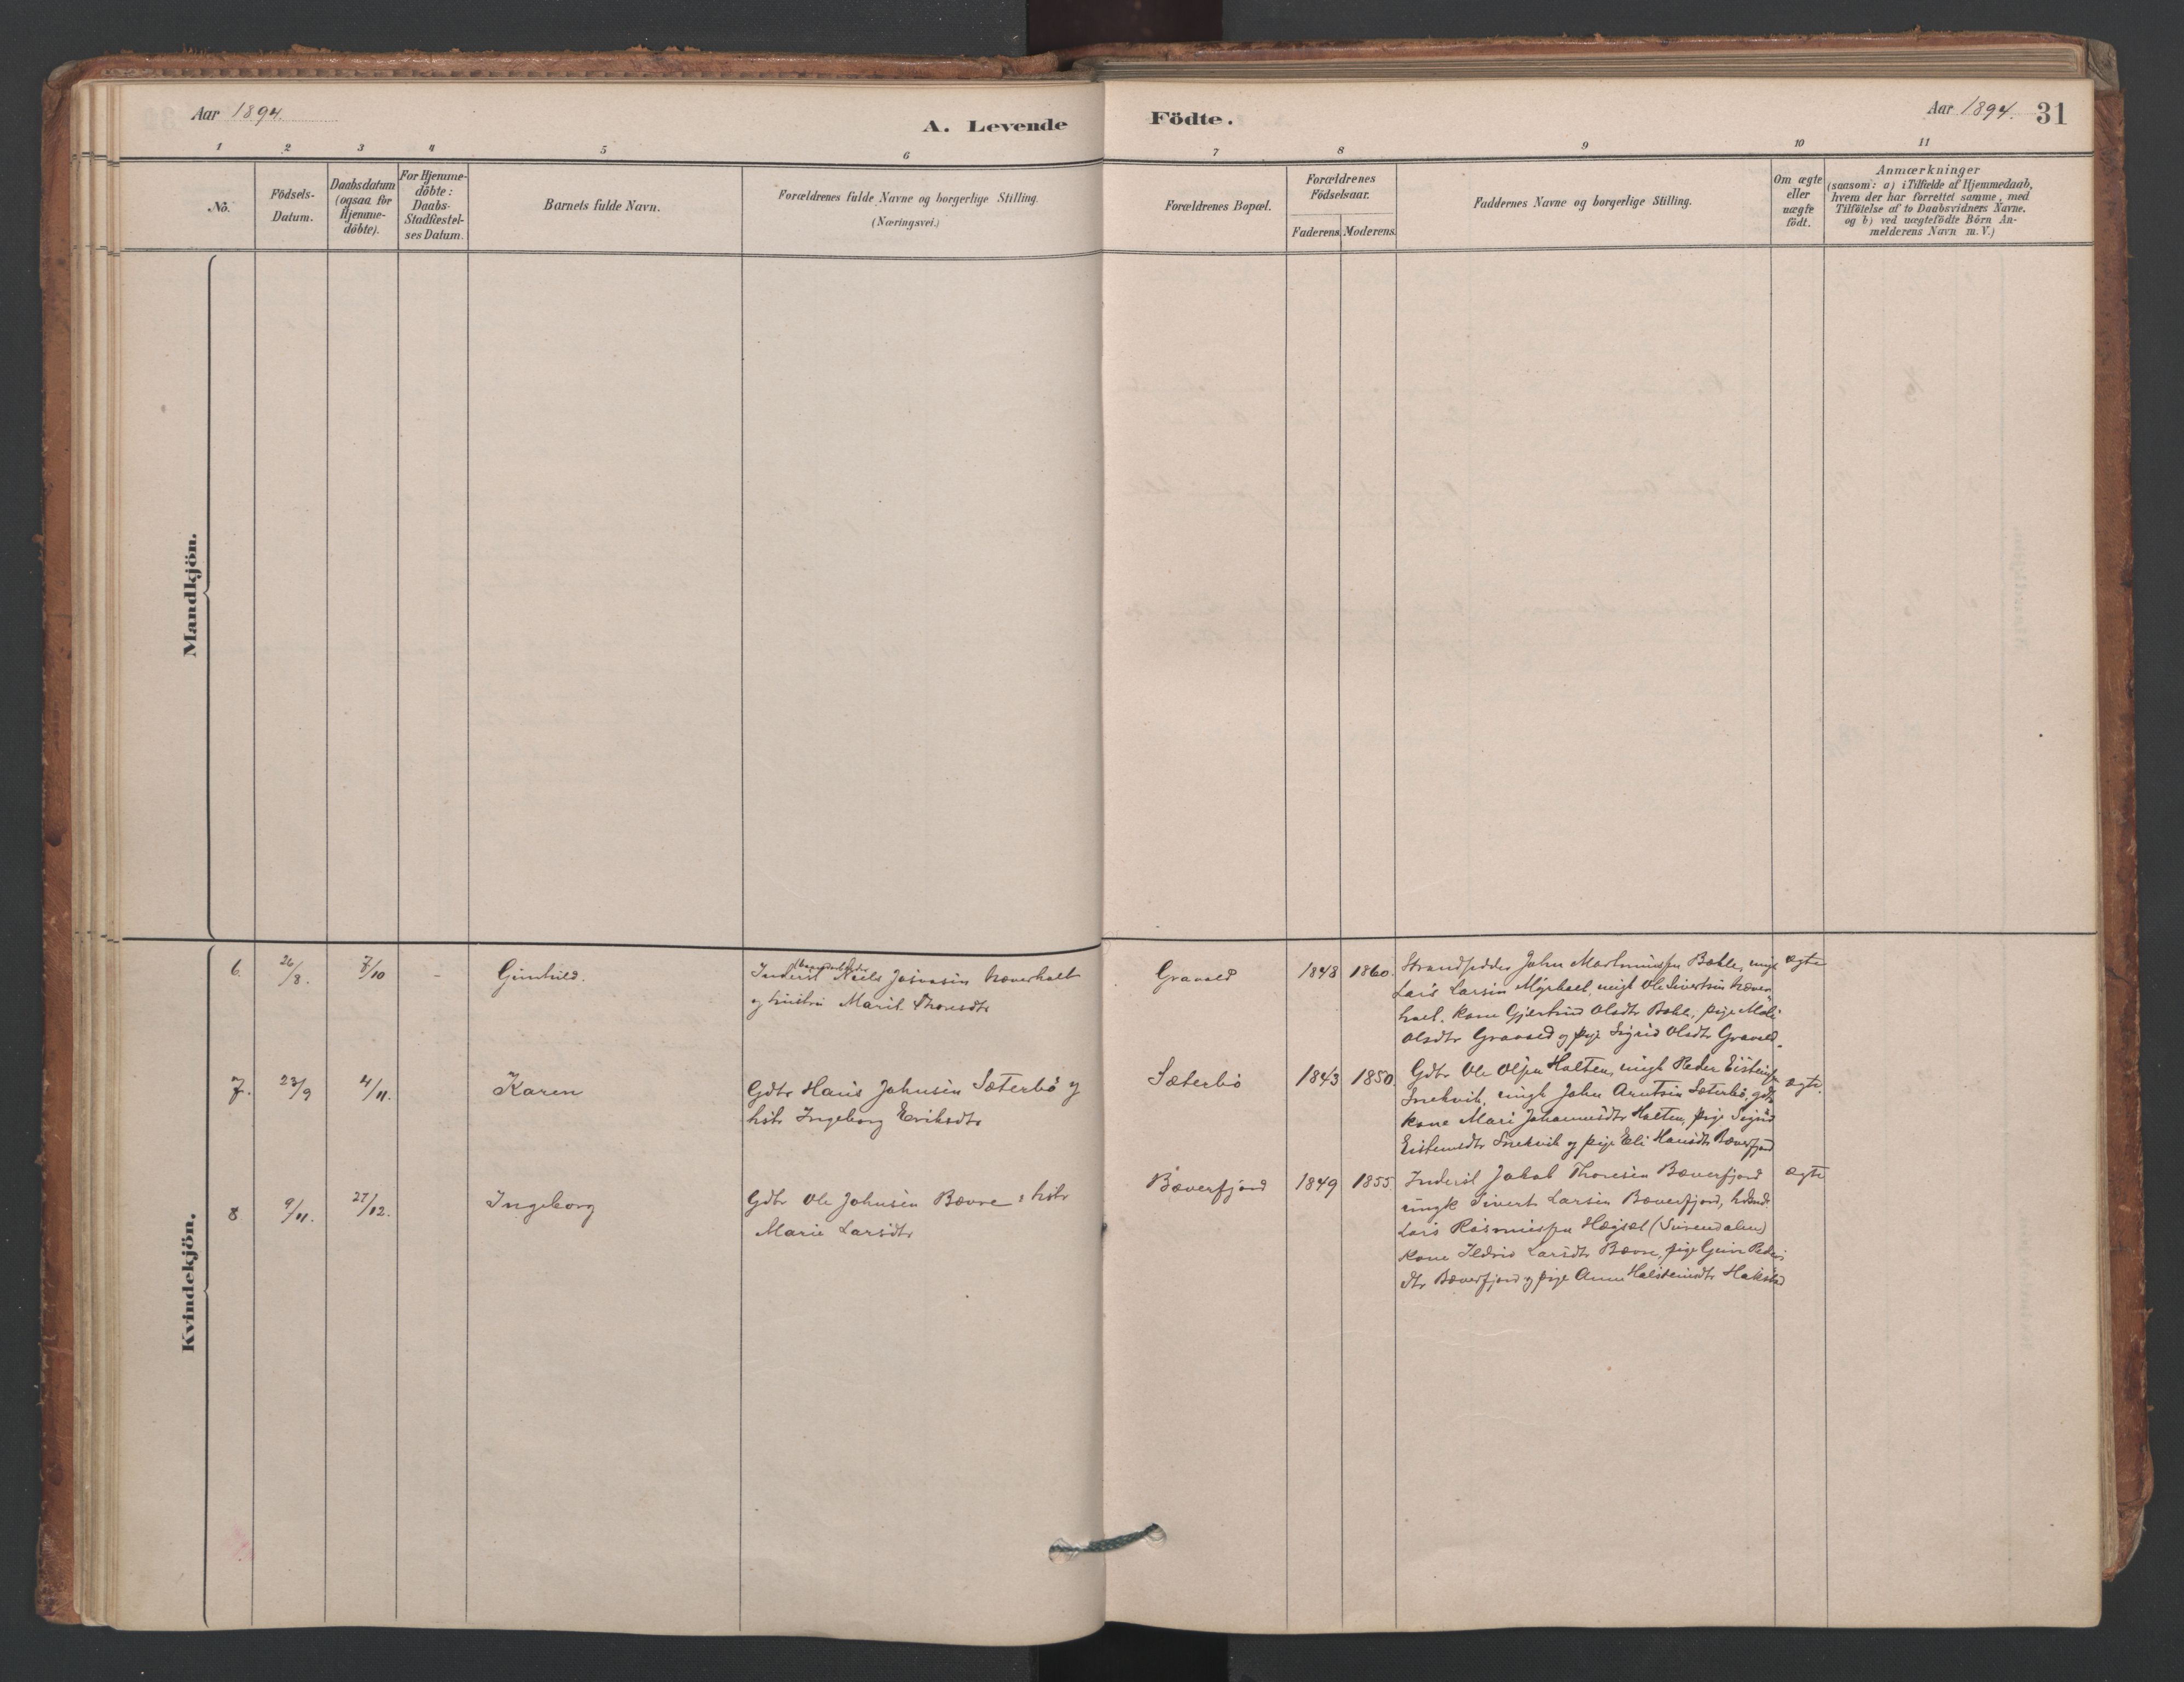 Aar 1894.
A. Levende Födte.
Aar 1894. 31
1 2 3 4 5 6 7 8 9 10 11
No.
Födsels-Datum.
Daabsdatum (ogsaa for Hjemme-döbte).
For Hjemme-döbte: Daabs-Stadfæstel-ses Datum.
Barnets fulde Navn.
Forældrenes fulde Navne og borgerlige Stilling.
(Næringsvei.)
Forældrenes Bopæl.
Forældrenes Födselsaar.
Faderens. Moderens.
Faddernes Navne og borgerlige Stilling.
Om ægte eller uægte födt.
Anmærkninger
(saasom: a) i Tilfælde af Hjemmedaab,
hvem der har forrettet samme, med
Tilföielse af to Daabsvidners Navne.
og b) ved uægtefödte Börn An-
melderens Navn m.V.)
Mandkjön.
Kvindekjön.
6. 26/8. 7/10 - Gunhild.
Inderst Niels
og hustru Marit Thoresdtr
Gravold 1848 1860.
Strandsidder John Bøhle, ungk
Lars Larsen Myrholt, ungk Ole Sivertsen
holt. Kone Gjertrud Olsdtr Bøhle, pige Mali
Olsdtr Gravold og pige Sigrid Olsdtr Gravold.
ægte
7. 23/9 4/11. Karen
Gdbr Hans Johnsen Sæterbö og
hstr Ingeborg Eriksdtr
Sæterbö 1843 1850.
Gdbr Ole Olsen Halten, ungk Peder
Snekvik, ungk John Arntsen Sæterbö, gdbr
kone Mari Johannesdtr Halten, pige Sigrid
Eistensdtr Snekvik og pige Eli Hansdtr Bæverfjord
ægte.
8 9/11. 27/12. Ingeborg
Gdbr Ole Johnsen Bævre : hstr
Marie Larsdtr
Bæverfjord 1849 1855
Inderst Jakob Thoresen Bæverfjord
ungk Sivert Larsen Bæverfjord,
Lars Rasmussen (Surendalen)
Kone Ildrid Larsdtr Bævre, pige Peders
dtr Bæverfjord og pige Anne Halsteinsdtr
ægte